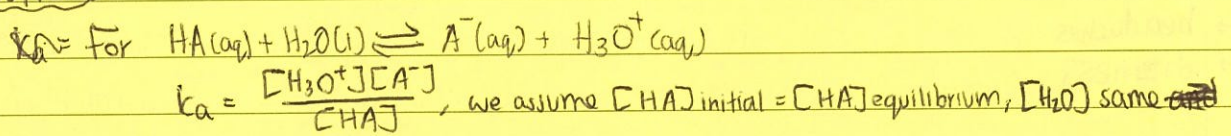 Ka = For HA(aq) + H₂O(l) ⇌ A⁻(aq) + H₃O⁺(aq)
Ka = [H₃O⁺][A⁻] / [HA], we assume [HA] initial = [HA] equilibrium, [H₂O] same